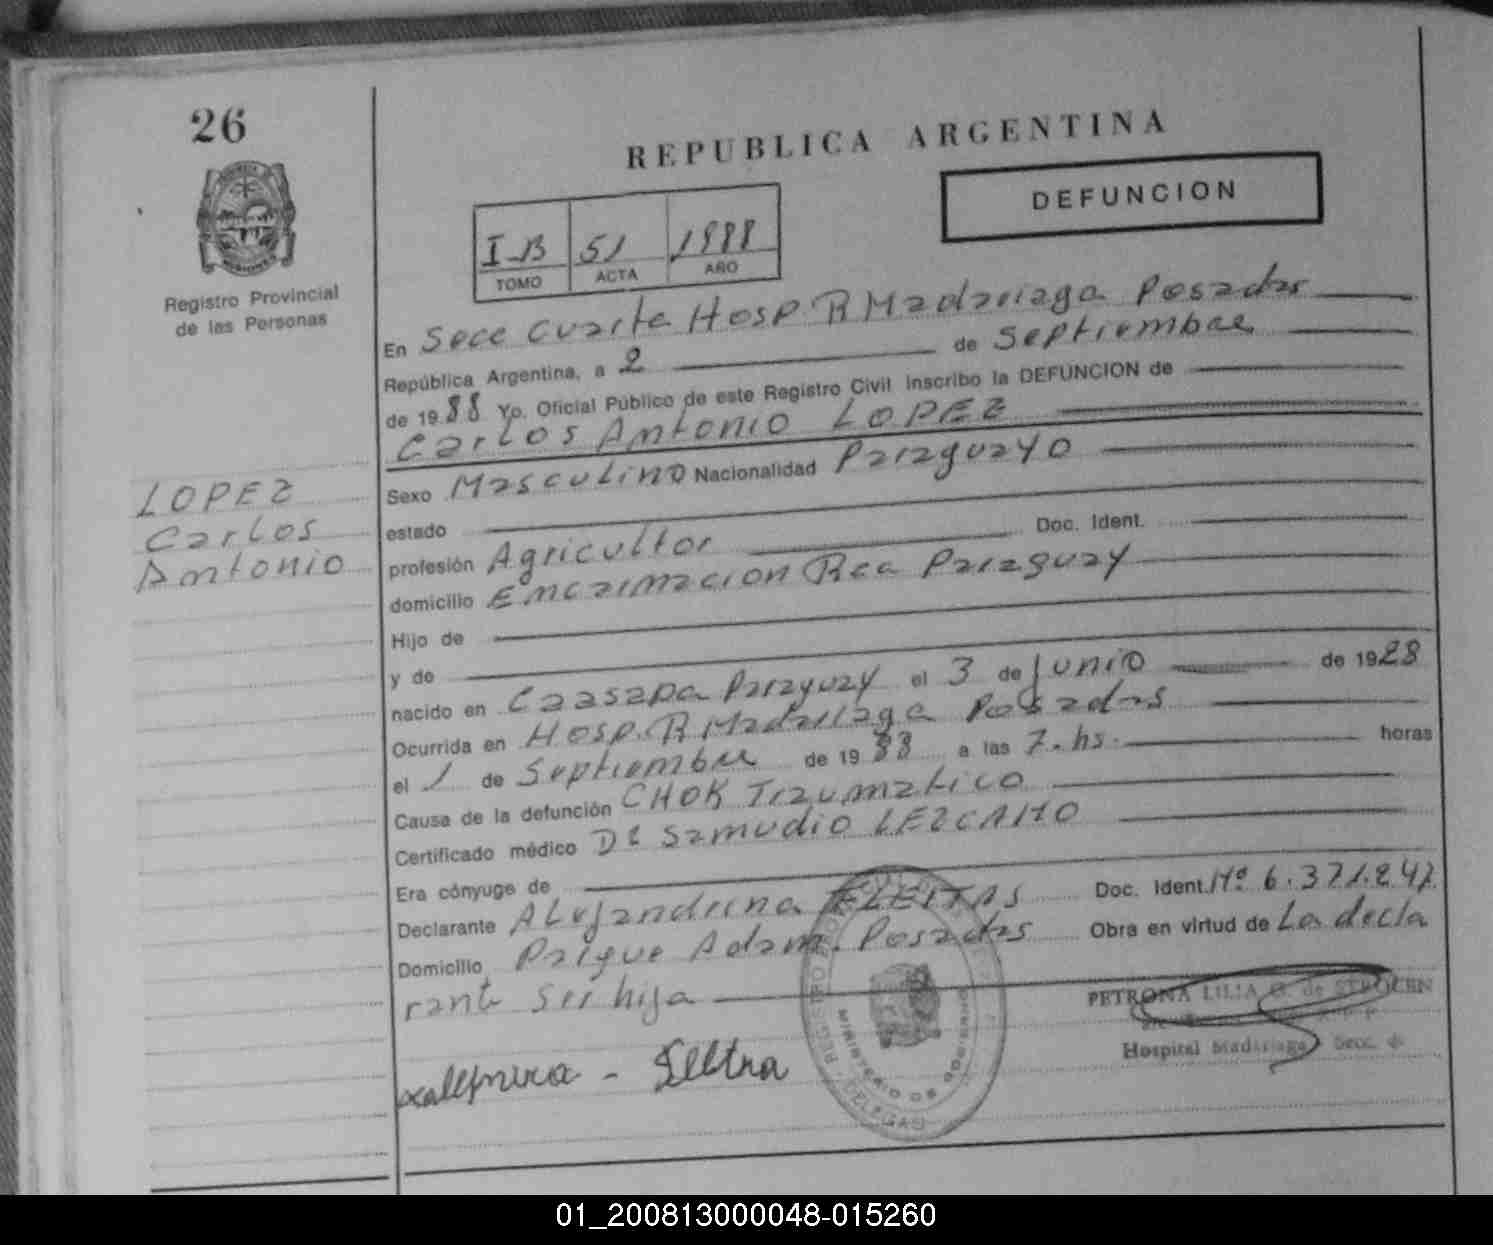 26
REPUBLICA ARGENTINA
DEFUNCION
I-B 51 1988
TOMO ACTA AÑO
Registro Provincial
de las Personas
En Secc Cuarta Hosp R Madariaga Posadas
República Argentina, a 2 de Septiembre
de 1988 Yo. Oficial Público de este Registro Civil inscribo la DEFUNCION de
Carlos Antonio LOPEZ
LOPEZ
Carlos
Antonio
Sexo Masculino Nacionalidad Paraguayo
estado
profesión Agricultor Doc. Ident.
domicilio Encarnacion Rca Paraguay
Hijo de
y de
nacido en Caasapa Paraguay el 3 de Junio de 1928
Ocurrida en Hosp. R Madariaga Posadas
el 1 de Septiembre de 1988 a las 7. hs. horas
Causa de la defunción CHOK Traumatico
Certificado médico Dr Samudio LEZCANO
Era cónyuge de
Declarante Alejandrina FLEITAS Doc. Ident. Nº 6.371.247
Domicilio Parque Adam. Posadas Obra en virtud de La decla
rante Ser hija
PETRONA LILIA G. de
Hospital Madariaga Secc. 4
REGISTRO PROVINCIAL DE LAS
MINISTERIO DE GOBIERNO
01_200813000048-015260